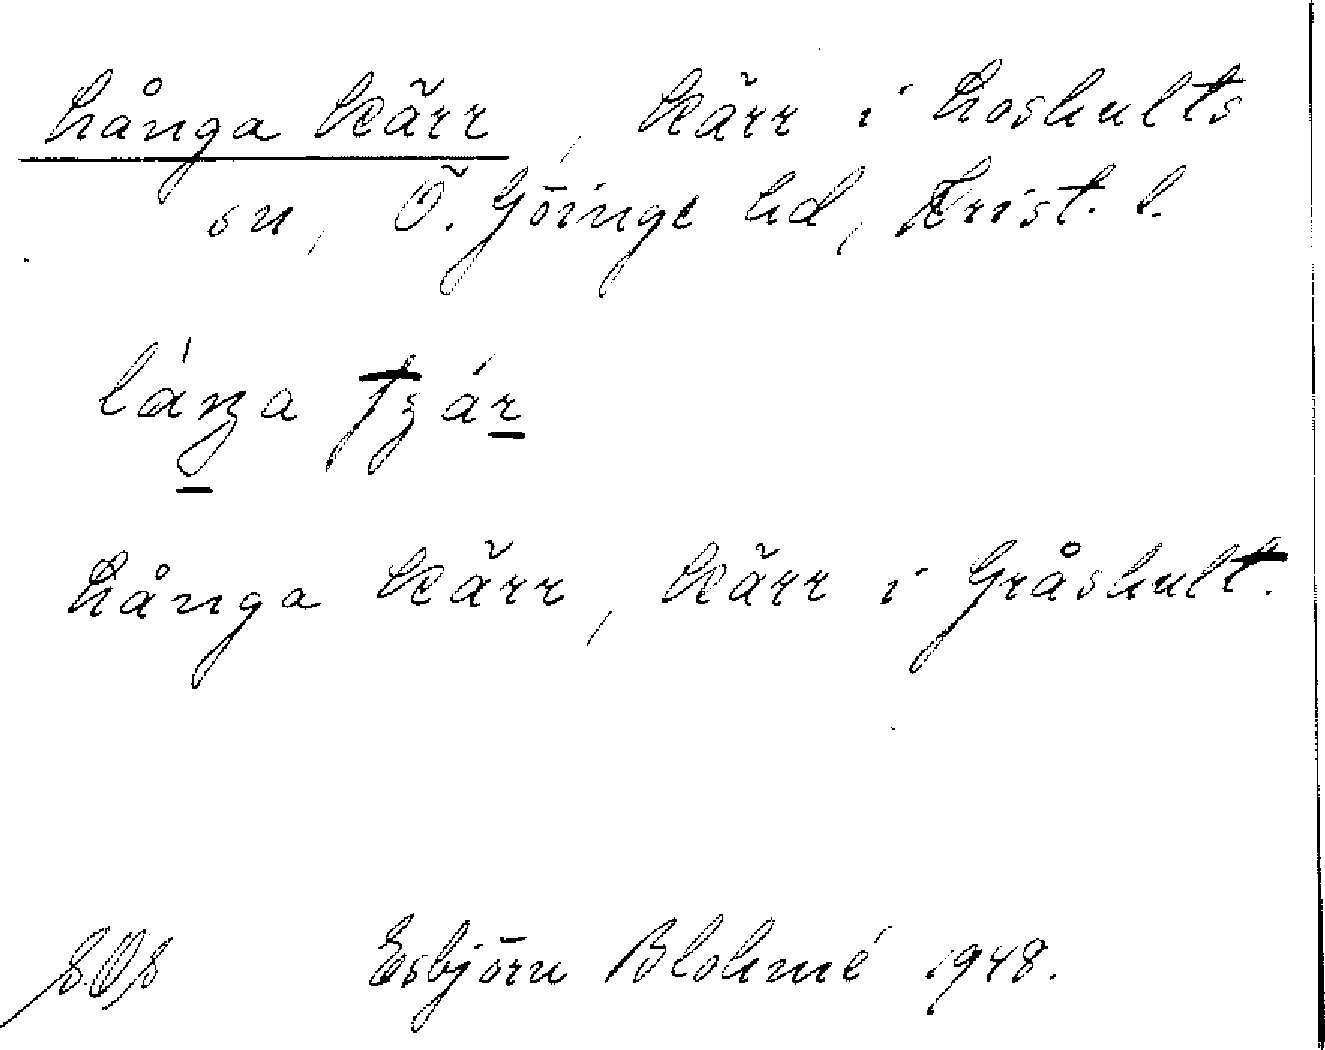 Långa kärr, kärr i Loshults
sn, Ö. Göinge hd, Krist. l.
Långa kärr, kärr i Gråshult.
Esbjörn Blohmé 1948.